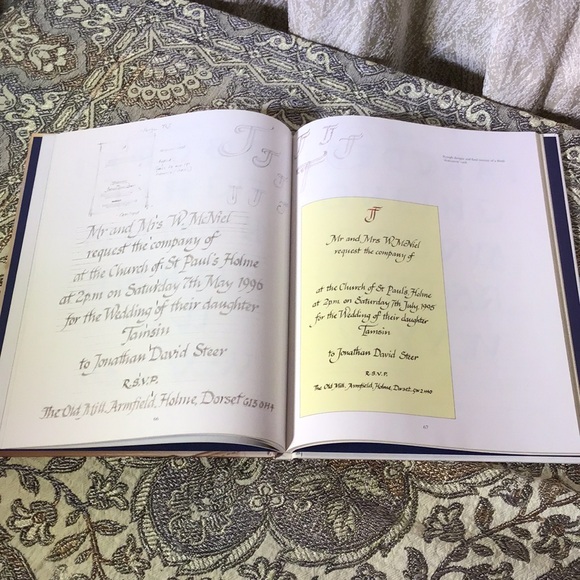 Mr and Mrs W. McNiel
request the company of
at the Church of St Paul's, Holme
at 2p.m. on Saturday 7th May 1990
for the Wedding of their daughter
Tamsin
to Jonathan David Steer
R.S.V.P.
The Old Mill, Armfield, Holme, Dorset
66
Mr and Mrs W. McNiel
request the company of
at the Church of St Paul's, Holme
at 2p.m. on Saturday 7th July, 1995
for the Wedding of their daughter
Tamsin
to Jonathan David Steer
R.S.V.P.
The Old Mill, Armfield, Holme, Dorset
67